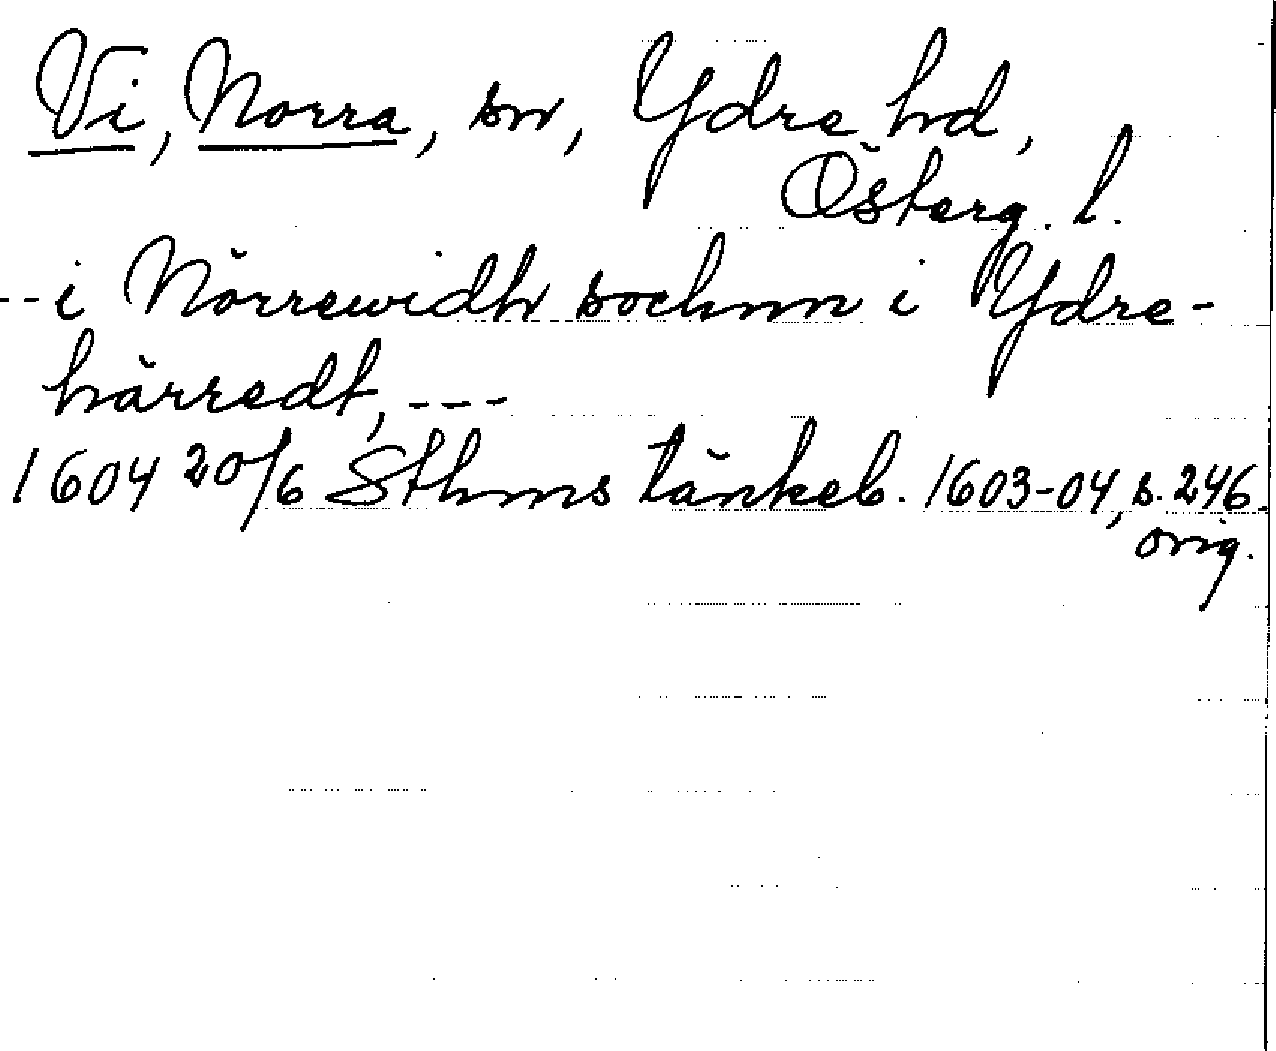 Vi, Norra, sn, Ydre hd,
Österg. l.
--i Nörrewidh sochnn i Ydre-
härredt, ---
1604 20/6 Sthms tänkeb. 1603-04, s. 246.
orig.